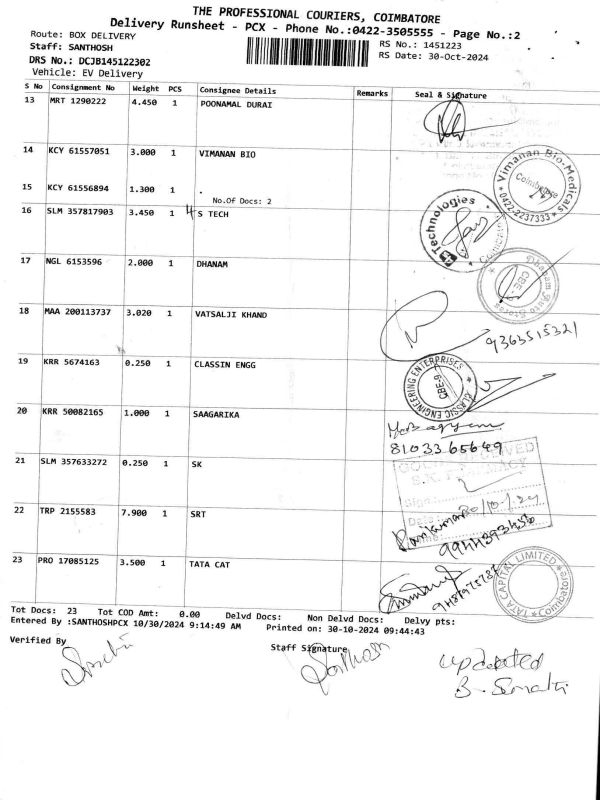 THE PROFESSIONAL COURIERS, COIMBATORE
Delivery Runsheet - PCX - Phone No.:0422-3505555 - Page No.:2
Route: BOX DELIVERY
RS No.: 1451223
Staff: SANTHOSH
RS Date: 30-Oct-2024
DRS No.: DCJB145122302
Vehicle: EV Delivery
S No Consignment No Weight PCS Consignee Details Remarks Seal & Signature
13 MRT 1290222 4.450 1 POONAMAL DURAI
14 KCY 61557051 3.000 1 VIMANAN BIO
Vimanan Bio-Medicals
Coimbatore
0422-2237333
15 KCY 61556894 1.300 1 .
No.Of Docs: 2
16 SLM 357817903 3.450 1 4 S TECH
Technologies
17 NGL 6153596 2.000 1 DHANAM
Dhanam
CBE
18 MAA 200113737 3.020 1 VATSALJI KHAND
9363515321
19 KRR 5674163 0.250 1 CLASSIN ENGG
KLASSIC ENGINEERING ENTERPRISES
CBE-9
20 KRR 50082165 1.000 1 SAAGARIKA
8103365649
21 SLM 357633272 0.250 1 SK
22 TRP 2155583 7.900 1 SRT
9944393456
23 PRO 17085125 3.500 1 TATA CAT
TATA CAPITAL LIMITED
Coimbatore
Tot Docs: 23 Tot COD Amt: 0.00 Delvd Docs: Non Delvd Docs: Delvy pts:
Entered By :SANTHOSHPCX 10/30/2024 9:14:49 AM Printed on: 30-10-2024 09:44:43
Verified By
Staff Signature
Santhosh
updated